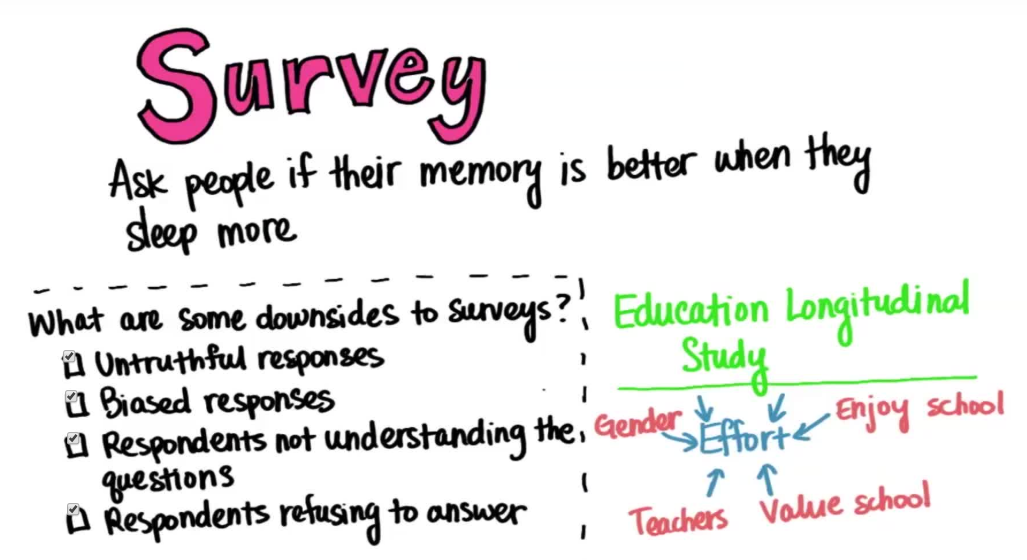 Survey
Ask people if their memory is better when they
sleep more
What are some downsides to surveys?
Untruthful responses
Biased responses
Respondents not understanding the
questions
Respondents refusing to answer
Education Longitudinal
Study
Gender
Enjoy school
Effort
Teachers
Value school